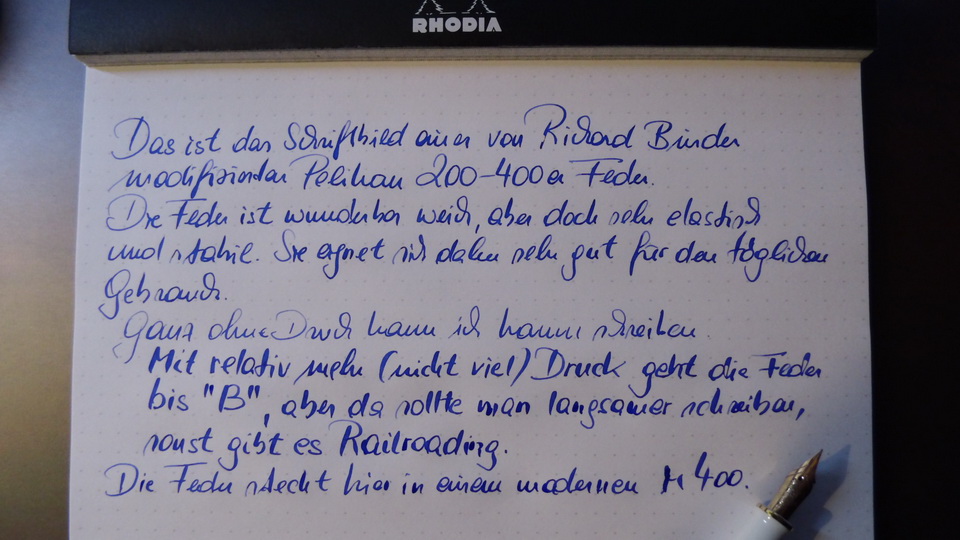 RHODIA
Das ist das Schriftbild einer von Richard Binder
modifizierten Pelikan 200-400er Feder.
Die Feder ist wunderbar weich, aber doch sehr elastisch
und stabil. Sie eignet sich daher sehr gut für den täglichen
Gebrauch.
Ganz ohne Druck kann ich kaum schreiben.
Mit relativ mehr (nicht viel) Druck geht die Feder
bis "B", aber da sollte man langsamer schreiben,
sonst gibt es Railroading.
Die Feder steckt hier in einem modernen M400.